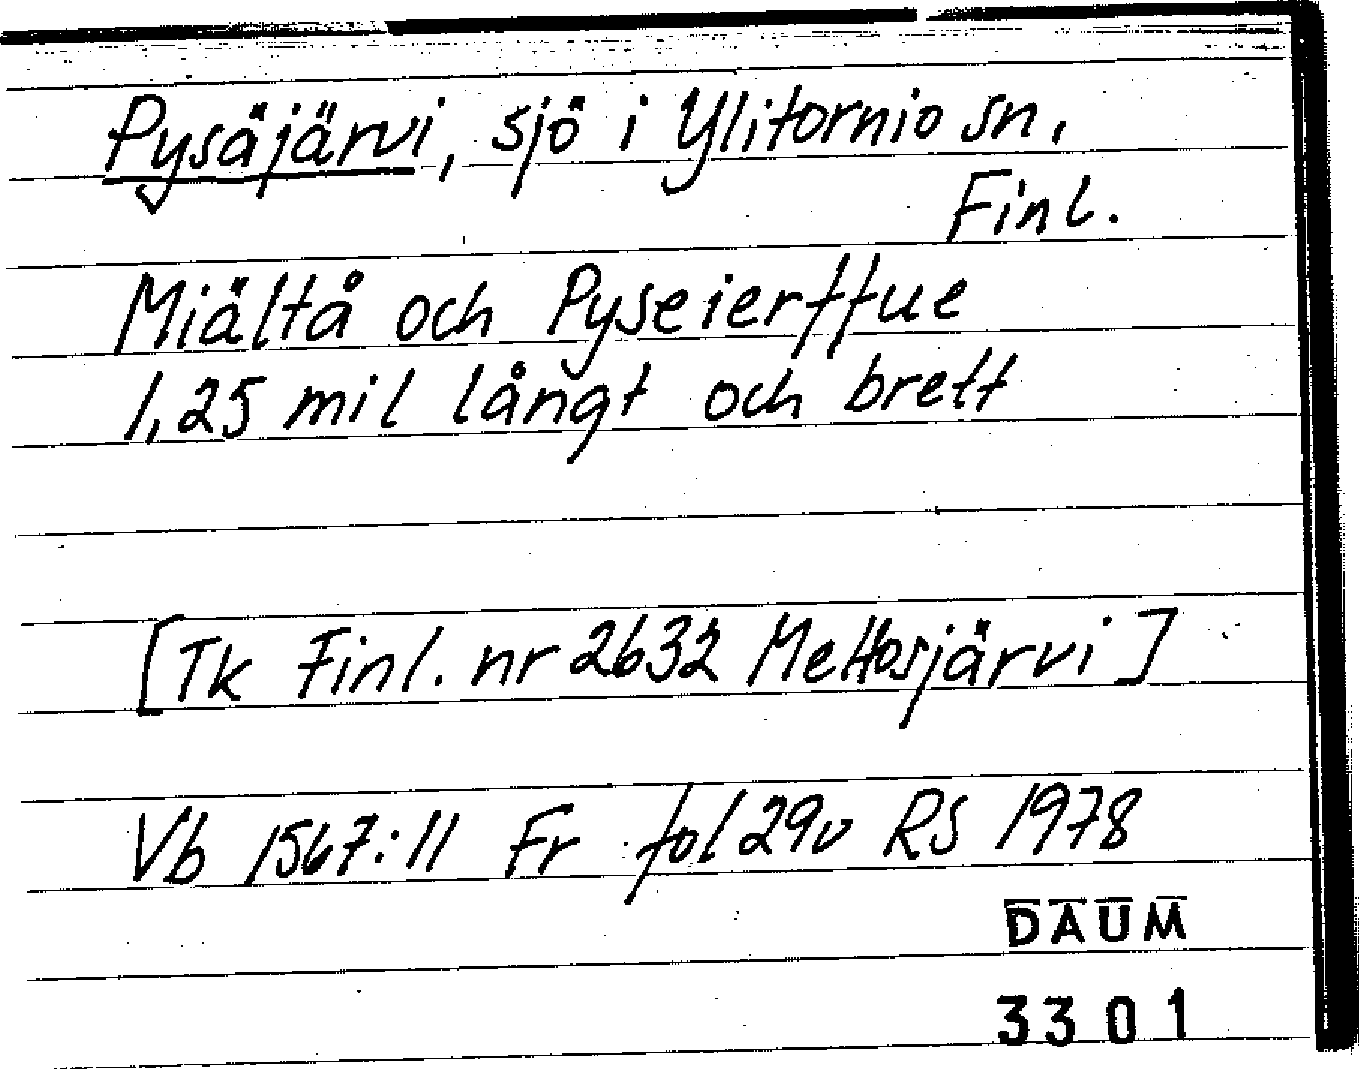 Pysäjärvi, sjö i Ylitornio sn,
Finl.
Miältå och Pyseierffue
1,25 mil långt och brett
[Tk Finl. nr 2632 Mettosjärvi]
Vb 1567:11 Fr fol 29v RS 1978
DAUM
3301